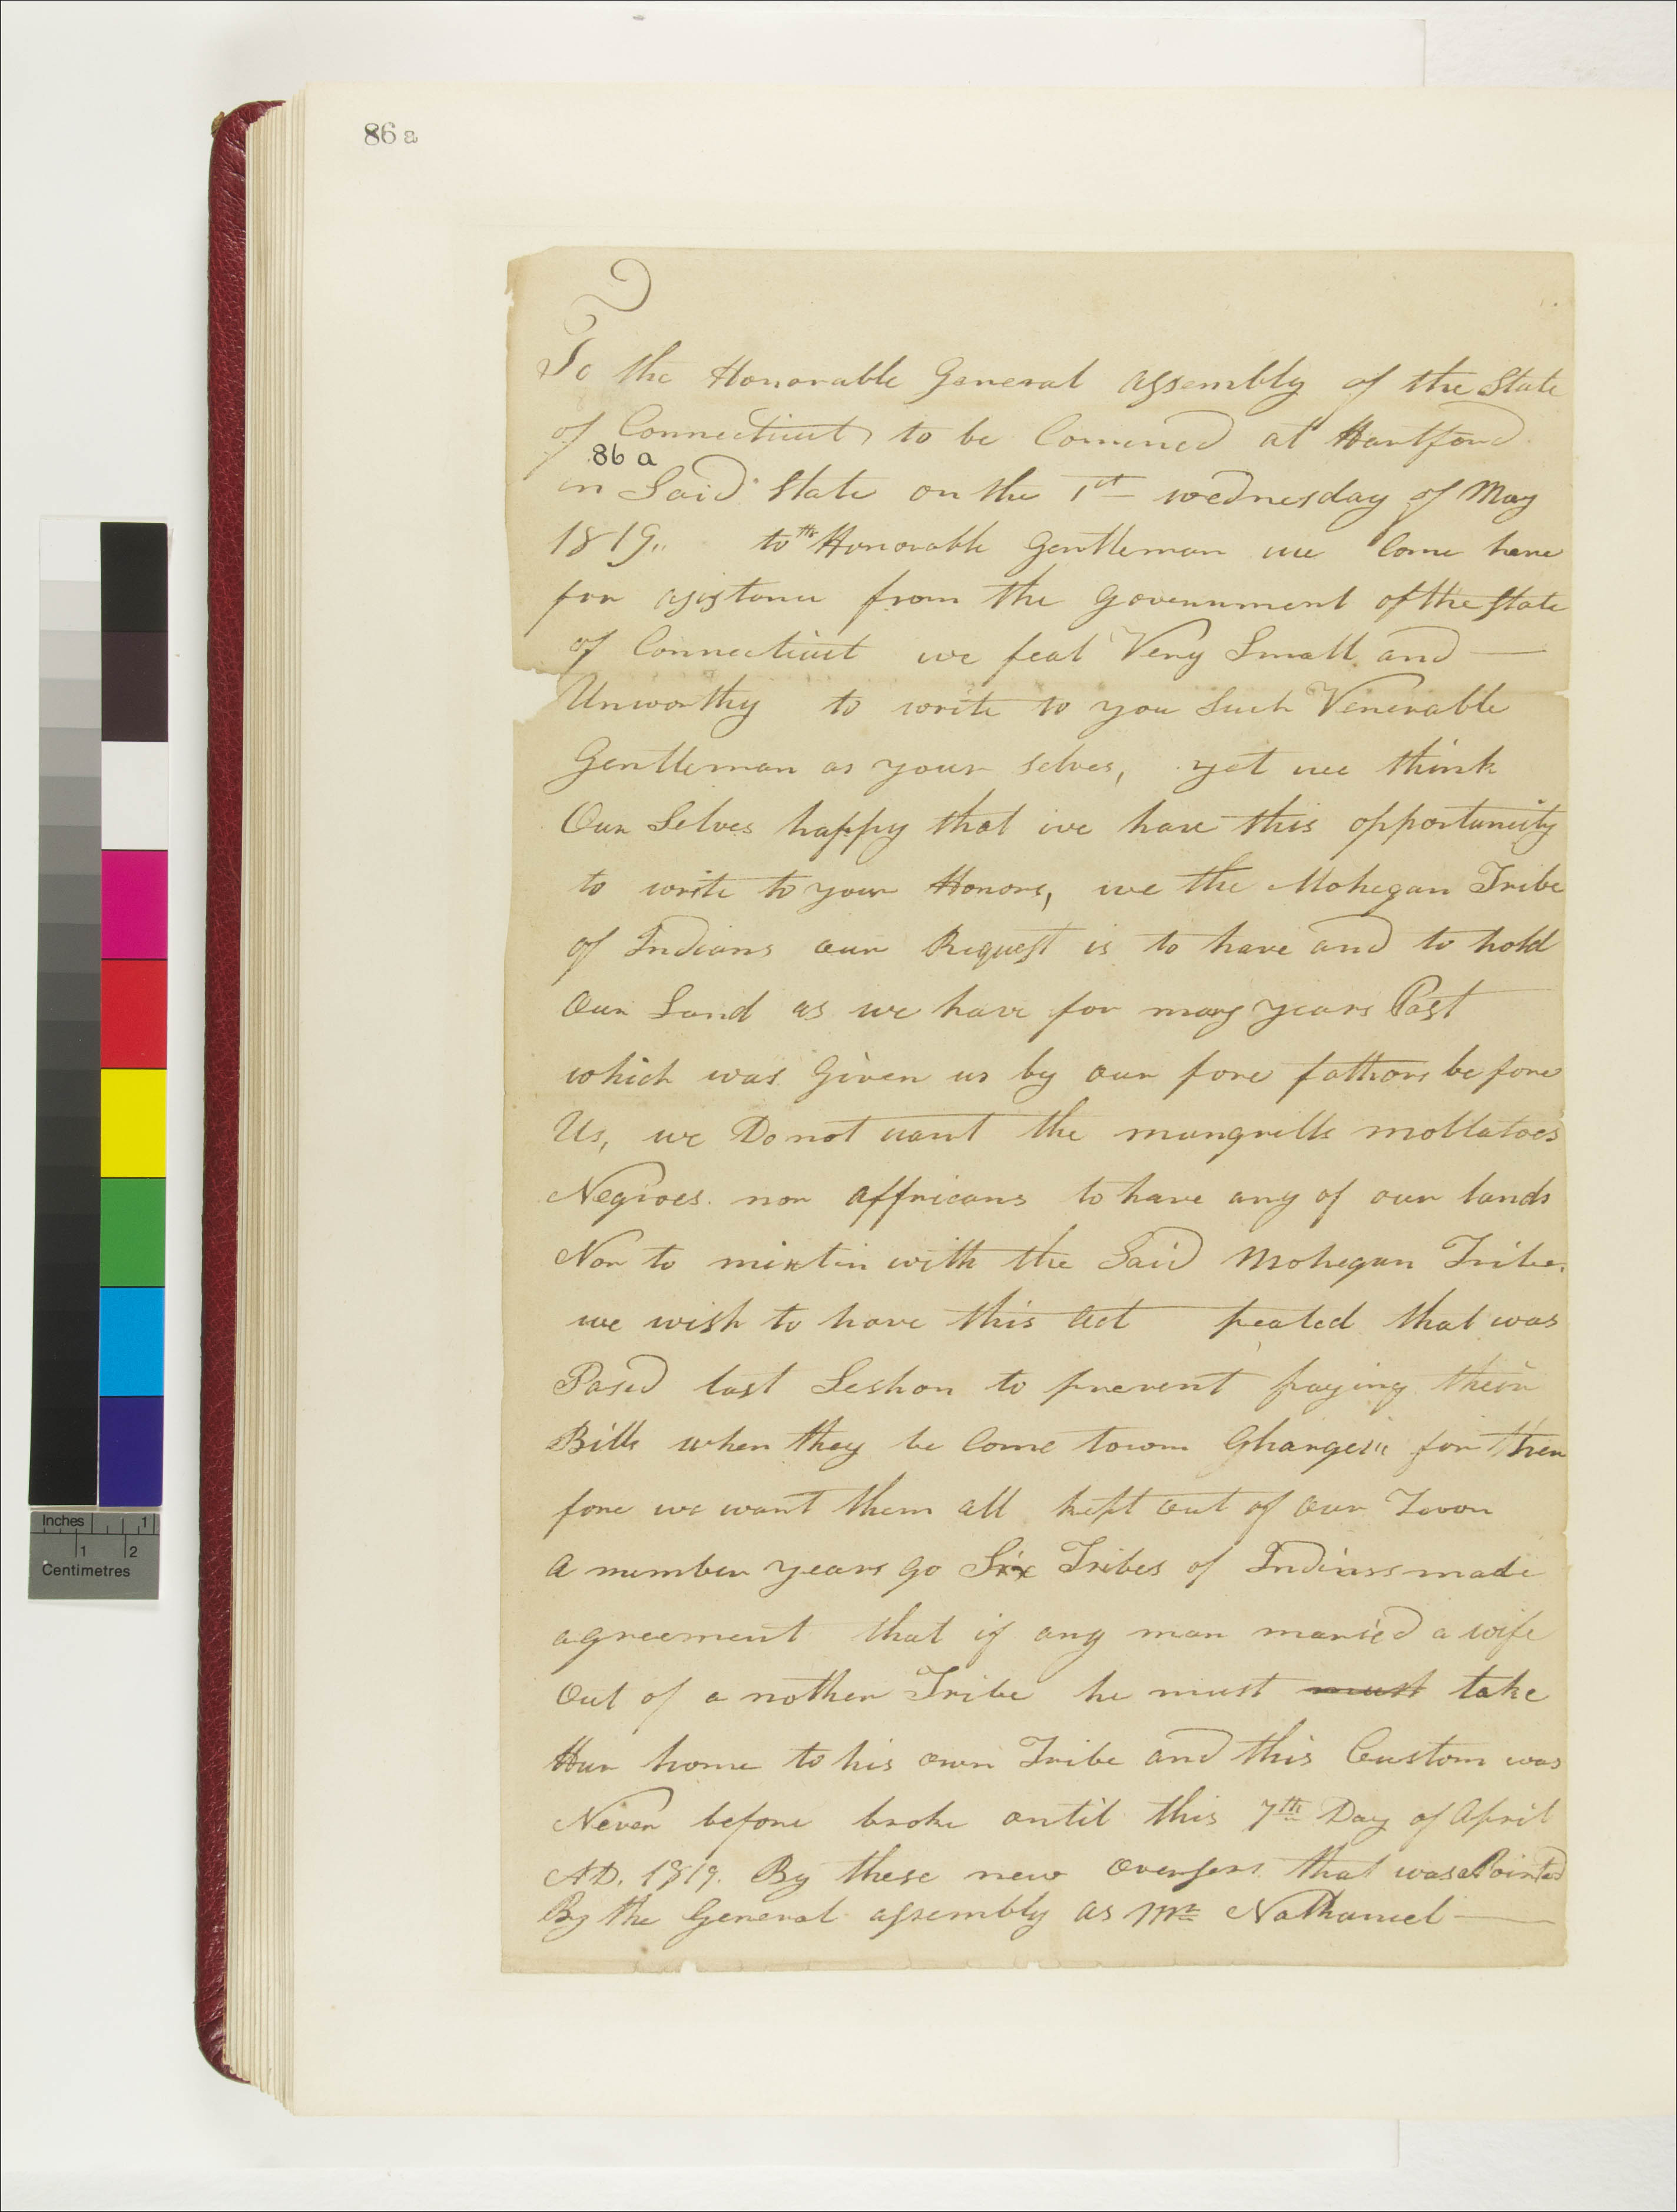 86 a
To the Honorable General assembly of the State
of Connecticut to be Conuned at Hartford
86 a
in Said State on the 1st wednesday of May
1819,, to the Honorable Gentleman we Come here
for asistance from the Government of the State
of Connecticut we feal Very Small and —
Unworthy to write to you Such Venerable
Gentleman as your selves, yet we think
Our Selves happy that we have this opportunity
to write to your Honors, we the Mohegan Tribe
of Indians our Request is to have and to hold
Our Land as we have for many years Past
which was Given us by our fore fathors before
Us, we Do not want the mungrills mollatoes
Negroes nor affricans to have any of our lands
Nor to mixtin with the Said Mohegan Tribe.
we wish to have this act peated that was
Pased last Seshon to prevent paying their
Bills when they be Come town Ghanges,, for ther
fore we want them all kept out of our Town
a number years go Six Tribes of Indians made
agreement that if any man maried a wife
Out of a nother Tribe he must must take
Hur home to his own Tribe and this Custom was
Never before broke until this 7th Day of April
AD. 1819. By these new oversers that was aPointed
By the General assembly as Mr Nathaniel —
Inches 1
1 2
Centimetres